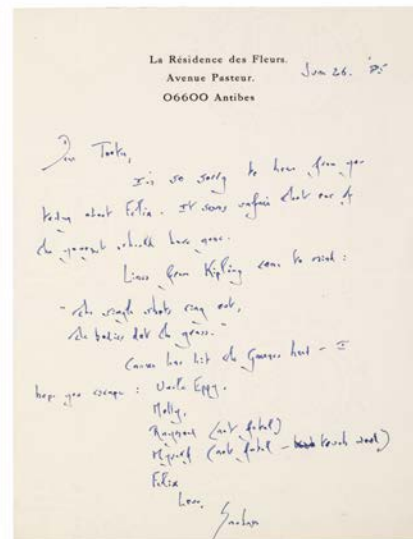 La Résidence des Fleurs.
Avenue Pasteur.
06600 Antibes
June 26. '85
Dear Tooter,
I'm so sorry to hear from you
today about Felix. It seems unfair that one of
the youngest should have gone.
Lines from Kipling come to mind:
"The single shots ring out,
the bodies dot the grass."
Cancer has hit the Greenes hard – I
hope you escape: Uncle Eppy,
Molly,
Raymond (not fatal)
Myself (not fatal – touch wood)
Felix
Love,
Graham